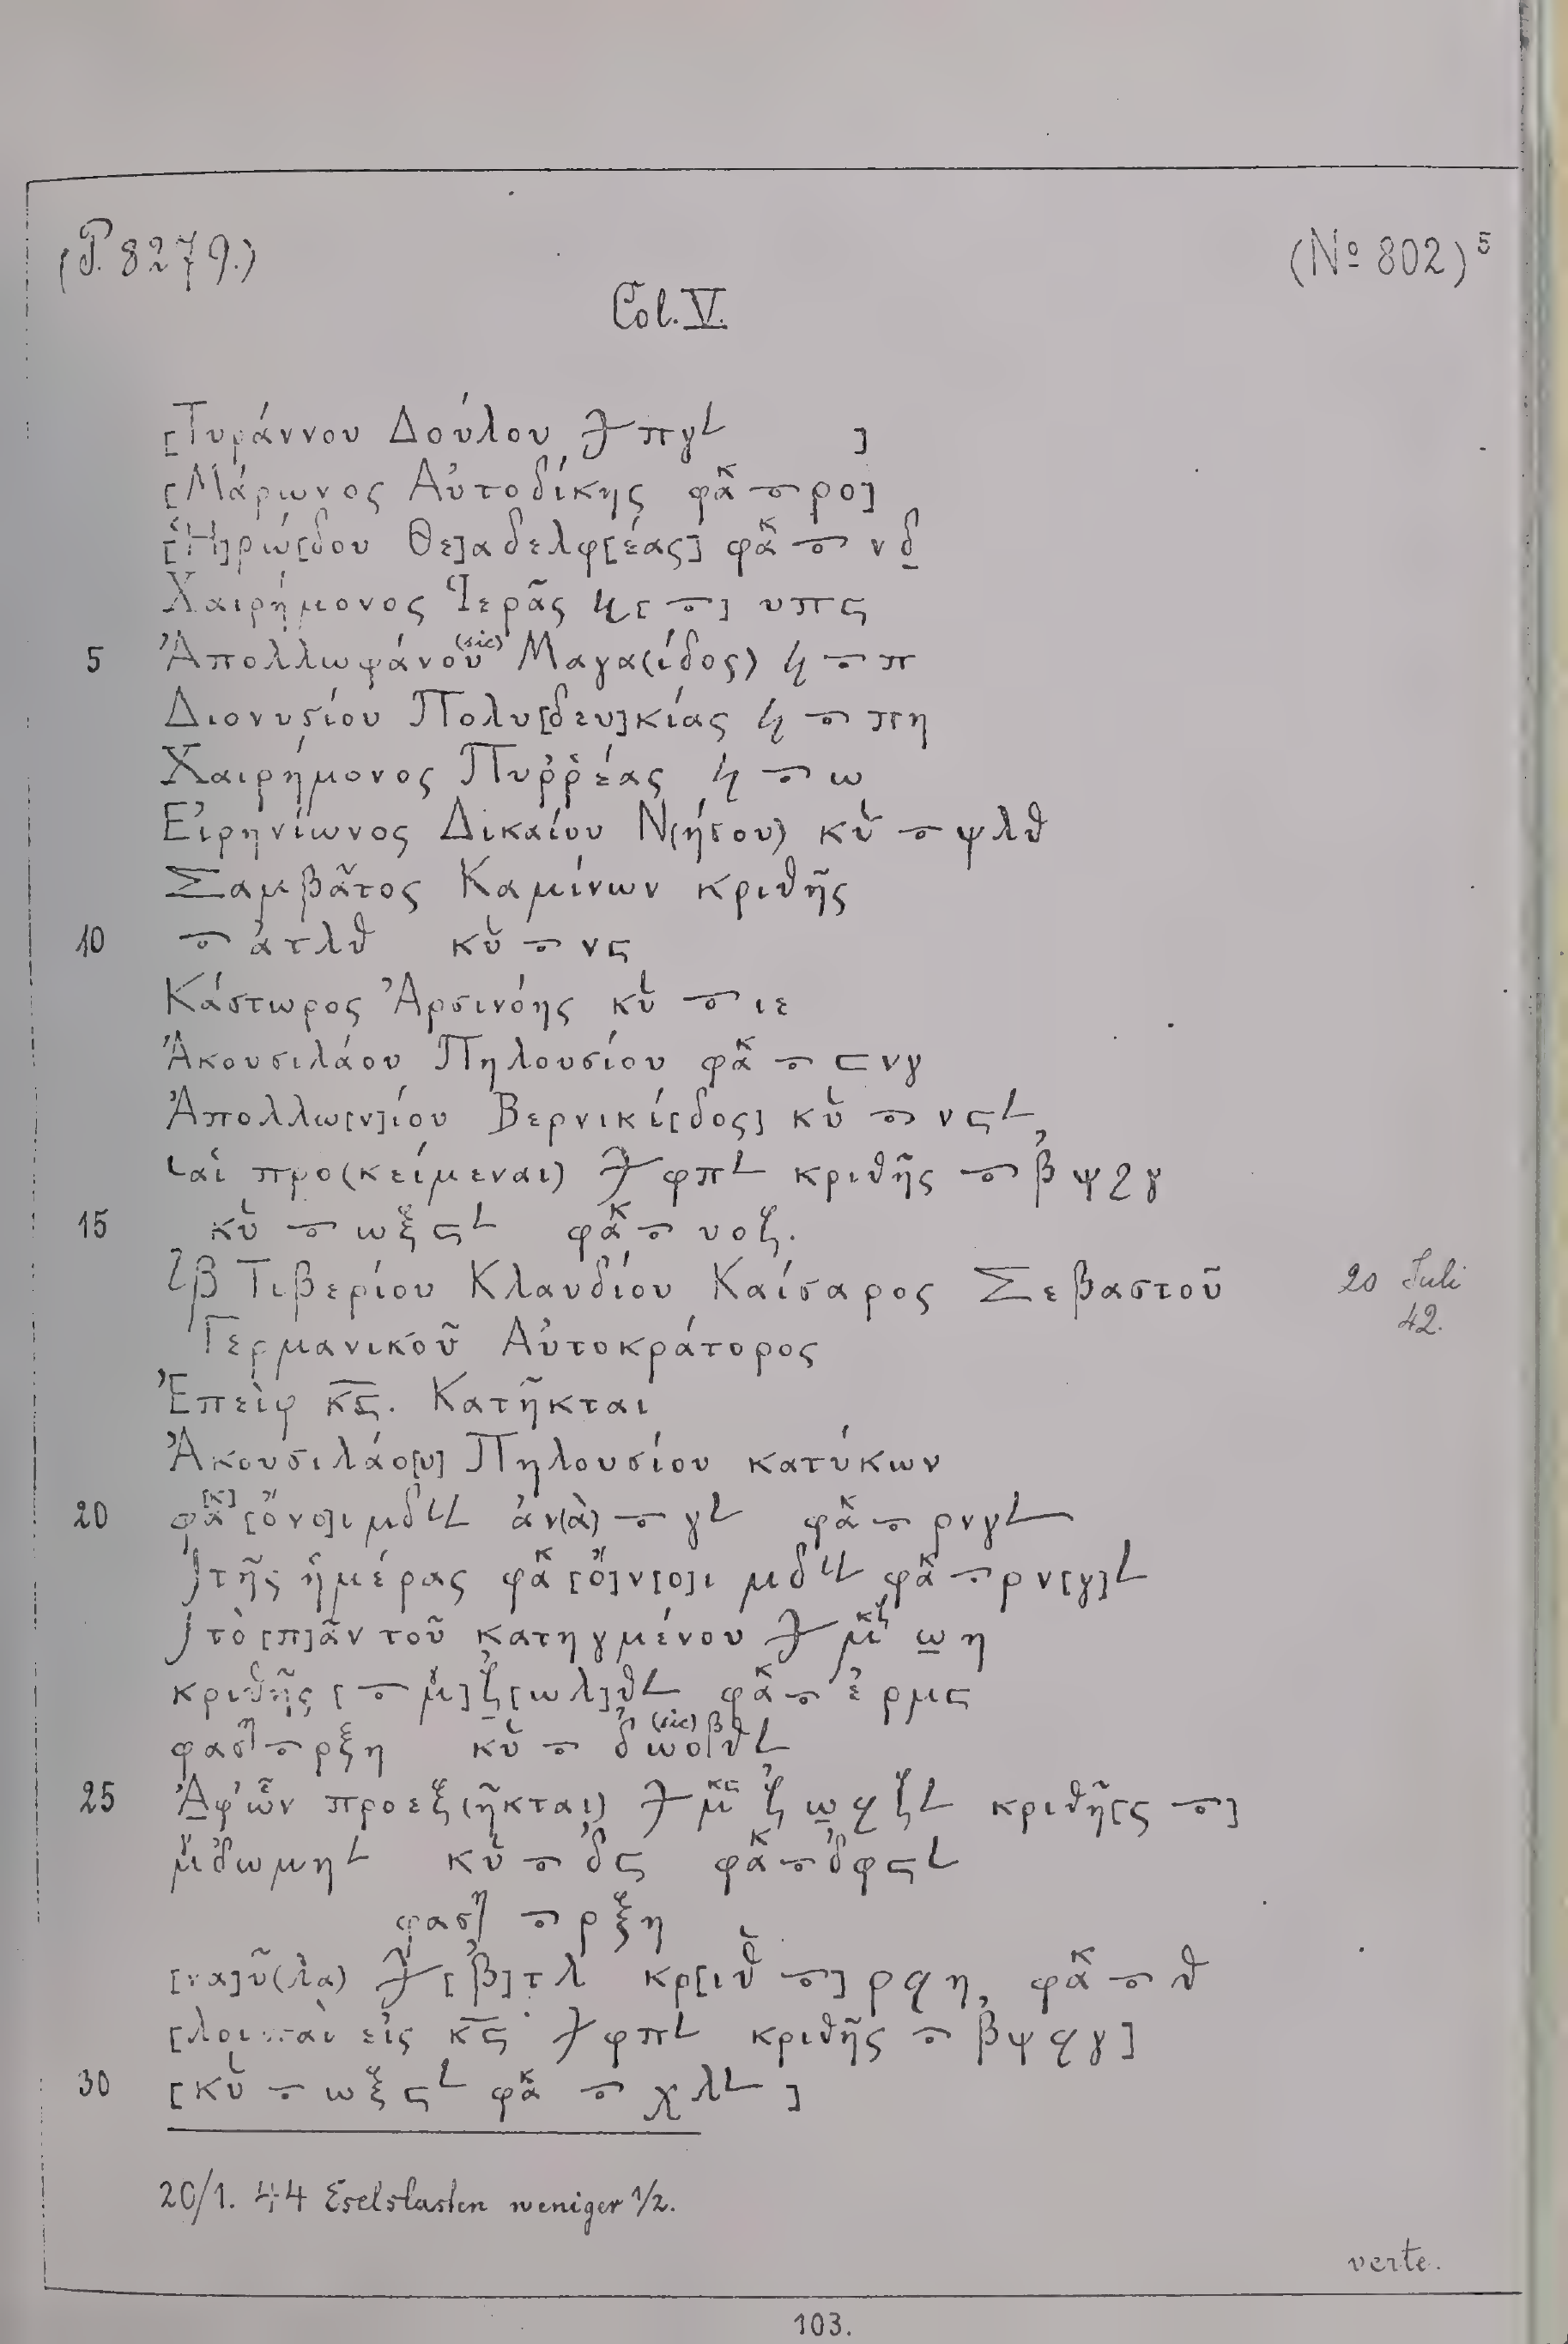 (P. 8279.) (No 802) 5
Col. V.
[Τυράννου Δούλου 𐆠 πγ𐅵 ]
[Μάρωνος Αὐτοδίκης φακ ⦵ ρο]
[Ἡ]ρώ[δου Θε]αδελφ[έας] φακ ⦵ νδ
Χαιρήμονος Ἱερᾶς [ ] υπϛ
5 Ἀπολλωφάνου (sic) Μαγα(ίδος) π
Διονυσίου Πολυ[δευ]κίας πη
Χαιρήμονος Πυῤῥέας ω
Εἰρηνίωνος Δικαίου Ν(ήσου) κυ ψλθ
Σαμβᾶτος Καμίνων κριθῆς
10 ͵ατλθ κυ νϛ
Κάστωρος Ἀρσινόης κυ ιε
Ἀκουσιλάου Πηλουσίου φακ ϲνγ
Ἀπολλω[ν]ίου Βερνικί[δος] κυ νϛ𐅵
αἱ προ(κείμεναι) φπ𐅵 κριθῆς ͵βψϟγ
15 κυ ωξϛ𐅵 φακ υοζ.
β Τιβερίου Κλαυδίου Καίσαρος Σεβαστοῦ 20 Juli
42.
Γερμανικοῦ Αὐτοκράτορος
Ἐπεὶφ κϛ. Κατῆκται
Ἀκουσιλάο[υ] Πηλουσίου κατύκων
20 φα[κ] [ὄνο]ι μδ ἀν(ὰ) γ𐅵 φακ ρνγ𐅵
τῆς ἡμέρας φακ [ὄ]ν[ο]ι μδ φακ ρν[γ]𐅵
τὸ [π]ᾶν τοῦ κατηγμένου ωη
κριθῆς [ ] ζ[ωλ]θ𐅵 φακ ͵ερμϛ
φαση ρξη κυ ͵δωο (sic) θ𐅵
25 Ἀφʼ ὧν προεξ(ῆκται) ͵ζωϟζ𐅵 κριθῆ[ς ]
͵δωμη𐅵 κυ ͵δϛ φακ ͵δφϛ𐅵
φαση ρξη
[να]ῦ(λα) [͵β]τλ κρ[ιθ ] ρϟη, φακ θ
[λοιπαὶ εἰς κϛ φπ𐅵 κριθῆς ͵βψϟγ]
30 [κυ ωξϛ𐅵 φακ χλ𐅵 ]
20/1. 44 Eselslasten weniger 1/2.
verte.
103.